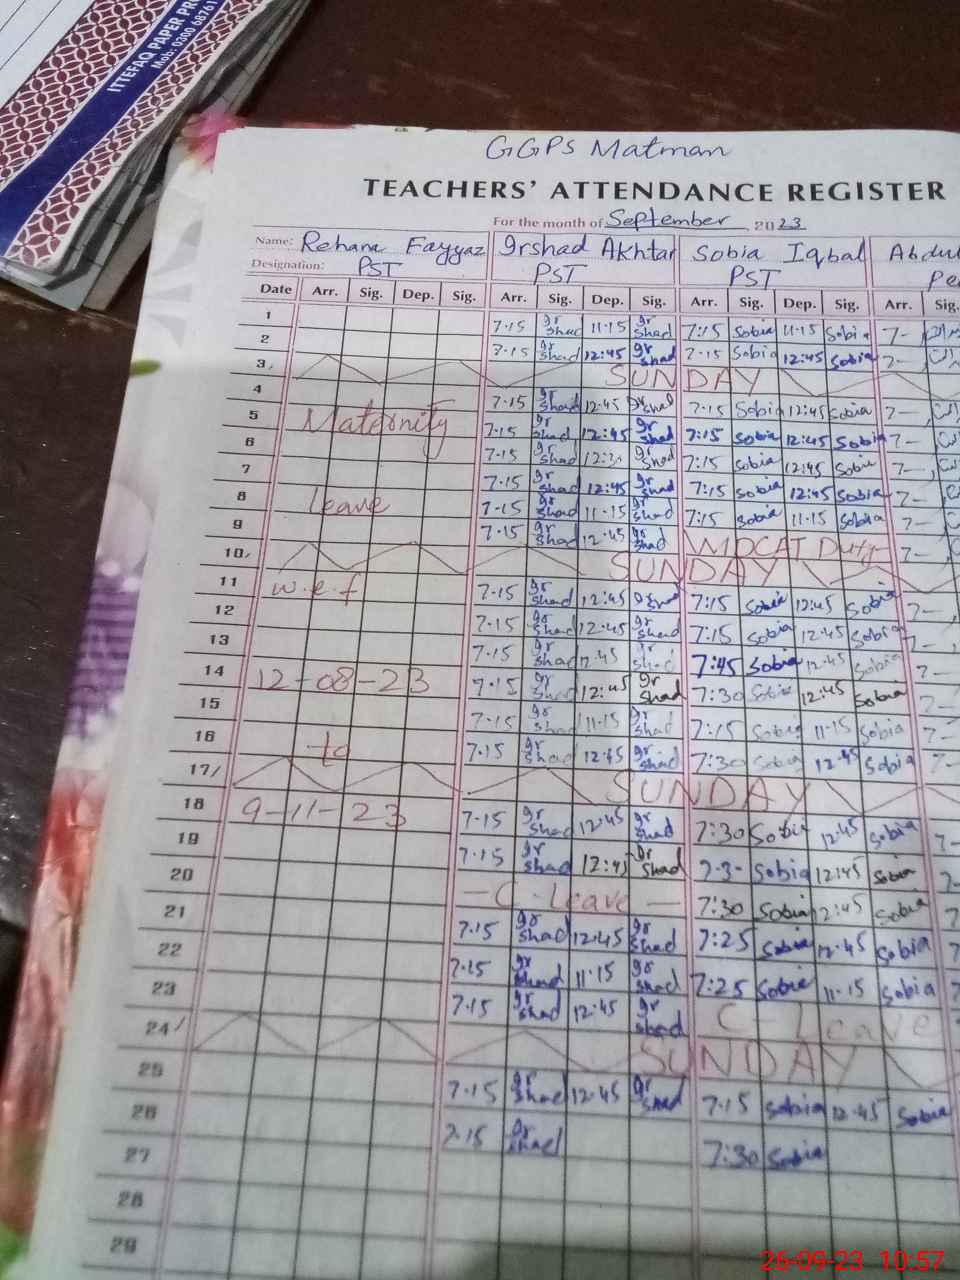 ITTEFAQ PAPER PR
Mob: 0300 68761
GGPS Matman
TEACHERS' ATTENDANCE REGISTER
For the month of September 2023
Name: Rehana Fayyaz Irshad Akhtar Sobia Iqbal Abdul
Designation: PST PST PST Pe
Date Arr. Sig. Dep. Sig. Arr. Sig. Dep. Sig. Arr. Sig. Dep. Sig. Arr. Sig.
1 7.15 Irshad 11.15 Irshad 7:15 Sobia 11.15 Sobia 7-
2 7.15 Irshad 12:45 Irshad 7.15 Sobia 12:45 Sobia 7-
3 SUNDAY
4 7.15 Irshad 12.45 Irshad 7.15 Sobia 12:45 Sobia 7-
5 Maternity 7.15 Irshad 12:45 Irshad 7:15 Sobia 12:45 Sobia 7-
6 7.15 Irshad 12:3 Irshad 7:15 Sobia 12:45 Sobia 7-
7 7.15 Irshad 12:45 Irshad 7:15 Sobia 12:45 Sobia 7-
8 leave 7.15 Irshad 11.15 Irshad 7:15 Sobia 11.15 Sobia 7-
9 7.15 Irshad 12.45 Irshad MDCAT Duty 7-
10 SUNDAY
11 w.e.f 7.15 Irshad 12:45 Irshad 7:15 Sobia 12:45 Sobia 7-
12 7.15 Irshad 12:45 Irshad 7:15 Sobia 12:45 Sobia 7-
13 7.15 Irshad 12.45 Irshad 7:45 Sobia 12:45 Sobia 7-
14 12-08-23 7.15 Irshad 12:45 Irshad 7:30 Sobia 12:45 Sobia 7-
15 7.15 Irshad 11.15 Irshad 7:15 Sobia 11.15 Sobia 7-
16 to 7.15 Irshad 12:45 Irshad 7:30 Sobia 12:45 Sobia 7-
17 SUNDAY
18 9-11-23 7.15 Irshad 12:45 Irshad 7:30 Sobia 12:45 Sobia 7-
19 7.15 Irshad 12:45 Irshad 7.3- Sobia 12:45 Sobia 7-
20 -C-Leave- 7:30 Sobia 12:45 Sobia 7-
21 7.15 Irshad 12:45 Irshad 7:25 Sobia 12.45 Sobia 7
22 7.15 Irshad 11.15 Irshad 7:25 Sobia 11.15 Sobia 7
23 7.15 Irshad 12:45 Irshad C-Leave
24 SUNDAY
25 7.15 Irshad 12:45 Irshad 7.15 Sobia 12.45 Sobia
26 7.15 Irshad 7:30 Sobia
27
28
29
26-09-23 10:57